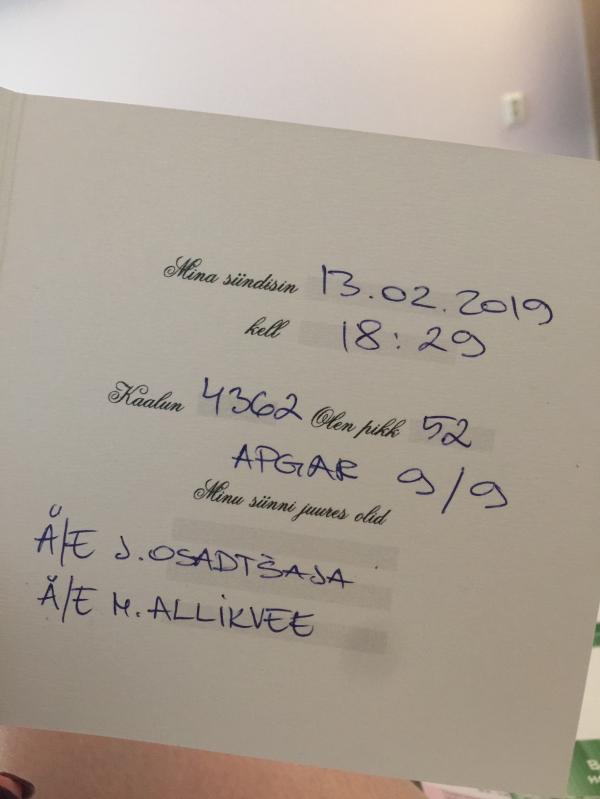 Mina sündisin 13.02.2019
kell 18:29
Kaalun 4362 Olen pikk 52
APGAR 9/9
Minu sünni juures olid
Ä/E J. OSADTŠAJA
Ä/E M. ALLIKVEE